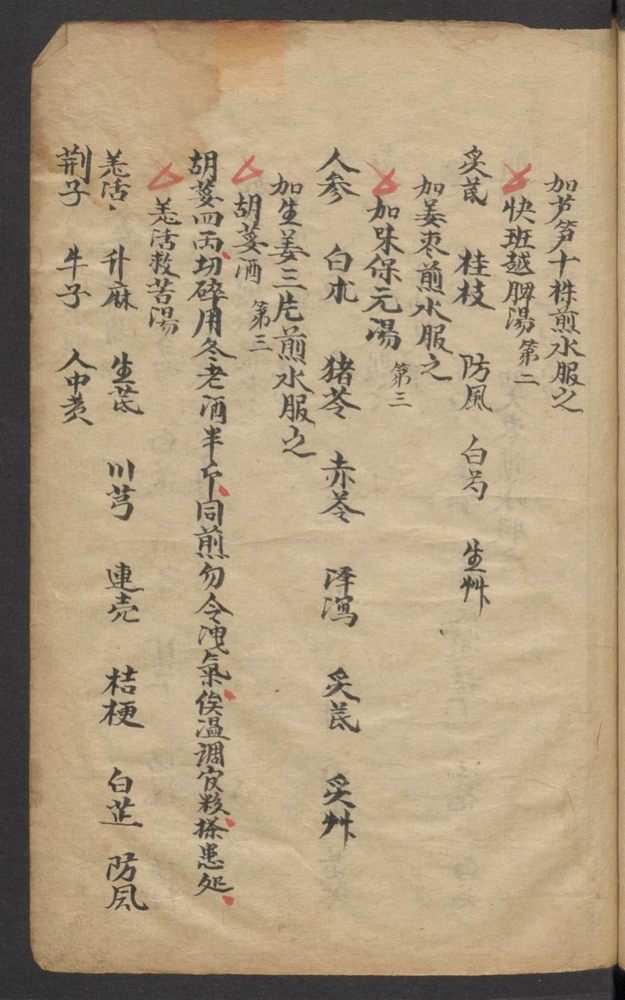 加芦笋十株煎水服之
快班越脾湯 第二
炙芪 桂枝 防風 白芍 生艸
加姜枣煎水服之
加味保元湯 第三
人参 白朮 猪苓 赤苓 泽泻 炙芪 炙艸
加生姜三片煎水服之
胡荽酒 第三
胡荽四両切碎用冬老酒半斤同煎勿令洩氣俟温調夜救搽患処
羗活救苦湯
羗活 升麻 生芪 川芎 連壳 桔梗 白芷 防風
荊子 牛子 人中黄